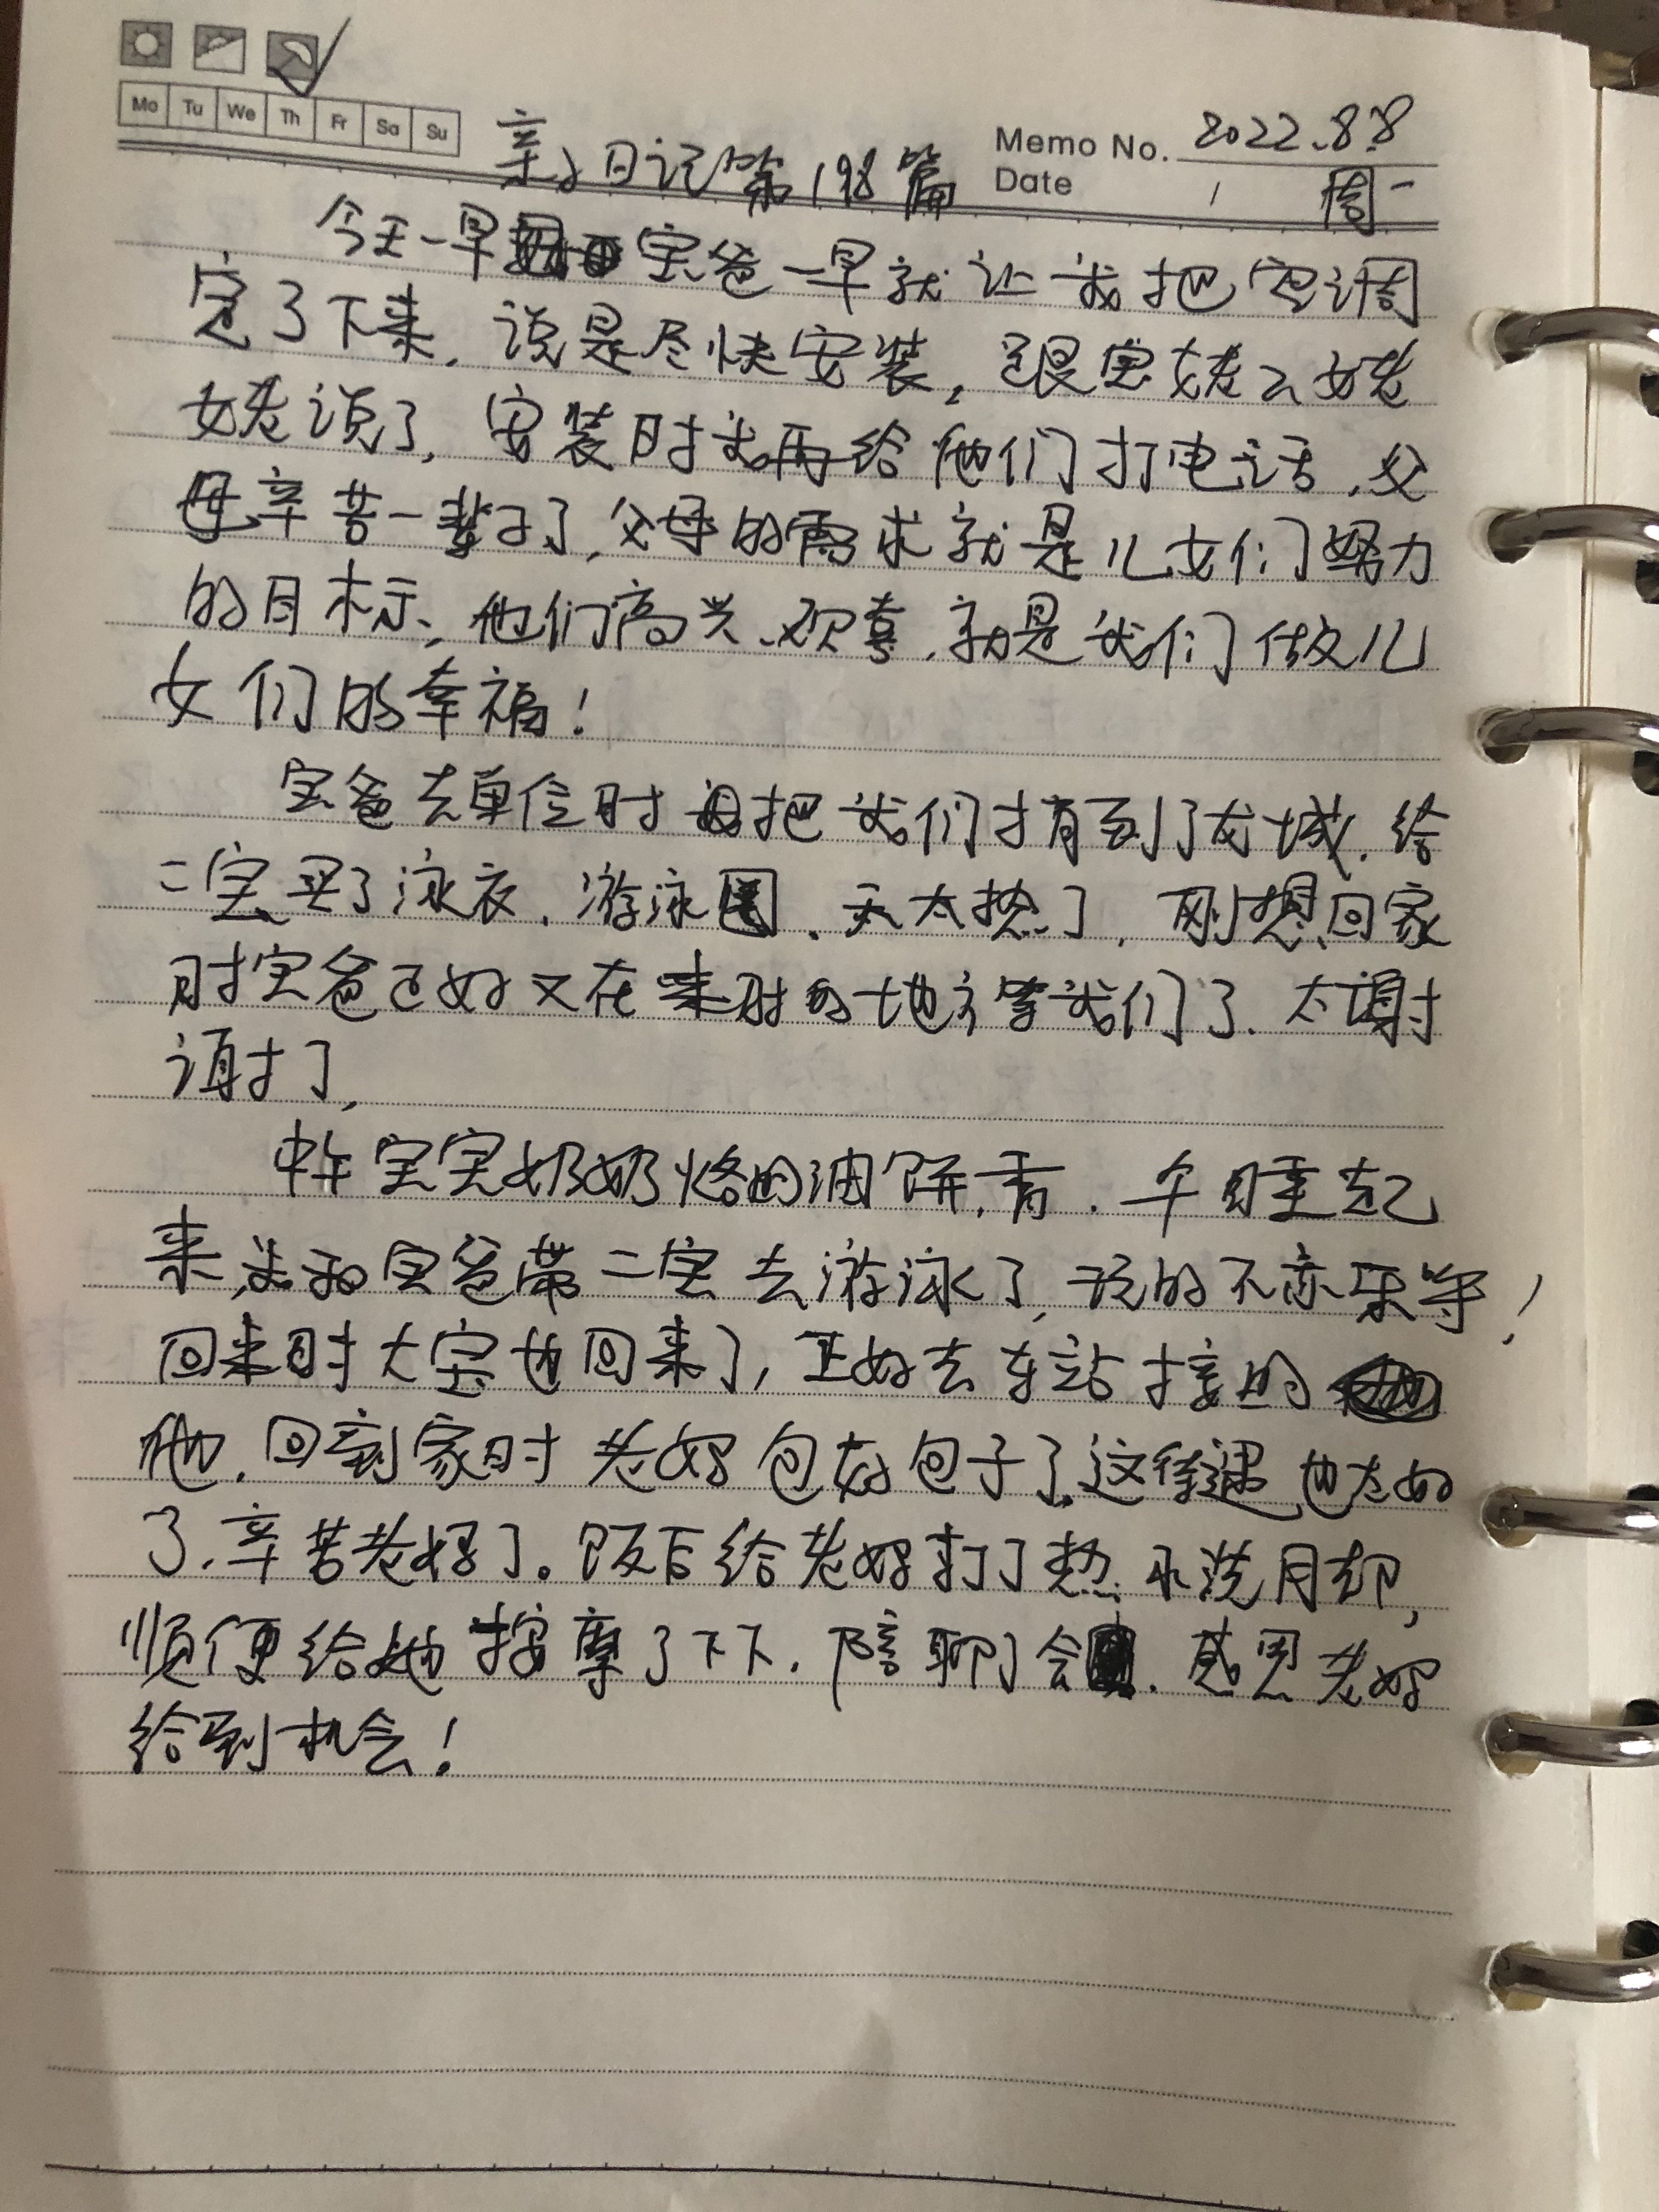 Mo Tu We Th Fr Sa Su
Memo No. 2022.8.8
Date 周一
亲子日记第198篇
今天一早宝爸一早就让我把空调
定了下来，说是尽快安装，跟宝姥和姥
姥说了，安装时我再给他们打电话，父
母辛苦一辈子了，父母的需求就是儿女们努力
的目标、他们高兴、欢喜，就是我们做儿
女们的幸福！
宝爸去单位时把我们捎到了龙城，给
二宝买了泳衣、游泳圈、天太热了，刚想回家
时宝爸正好又在来时的地方等我们了、太谢
谢了，
中午宝宝奶奶烙的油饼，香、午睡起
来，我和宝爸带二宝去游泳了，玩的不亦乐乎！
回来时大宝也回来了，正好去车站接的
他、回到家时老妈包好包子了，这待遇也太好
了、辛苦老妈了。饭后给老妈打了热水洗脚，
顺便给她按摩了下下、陪聊了会、感恩老妈
给到机会！